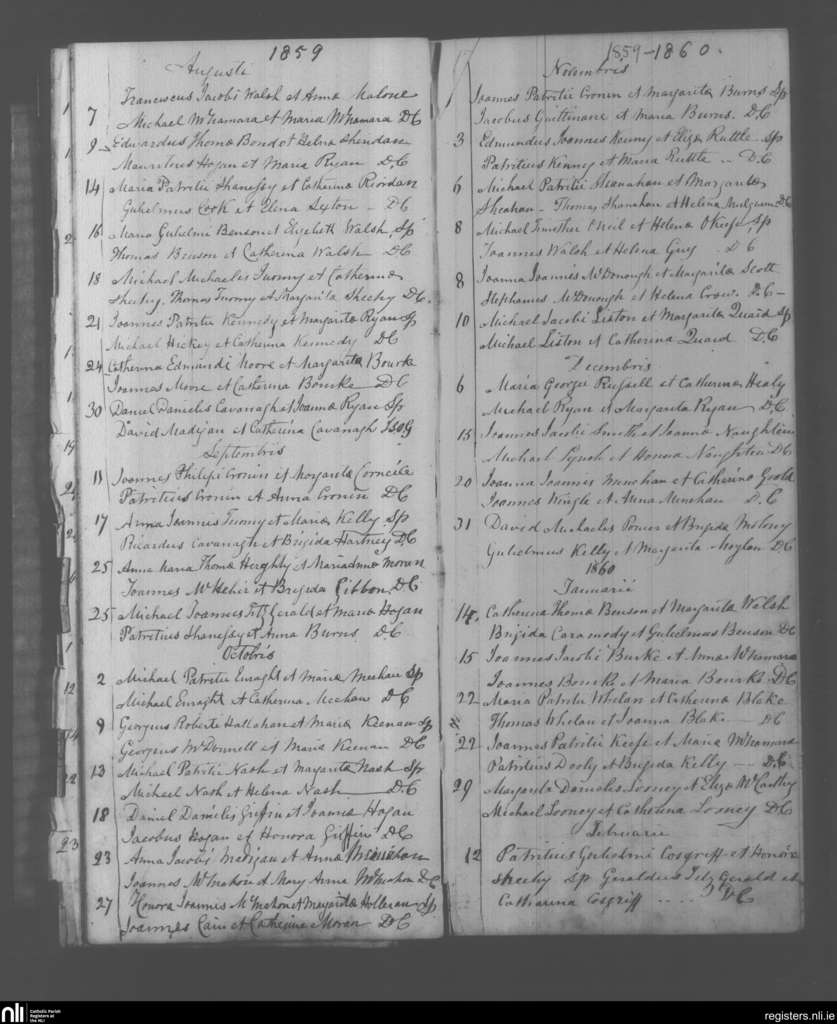 1859
Augusti
7 Franciscus Jacobi Walsh et Anna Malone
Michael McNamara et Maria McNamara DC
9 Edwardus Thomæ Bond et Helena Sheridan
Mauritius Hogan et Maria Ryan DC
14 Maria Patritii Shanessy et Catherina Riordan
Gulielmus Cook et Elena Sexton - DC
16 Maria Gulielmi Benson et Elizabeth Walsh, Sp
Thomas Benson et Catherina Walsh DC
18 Michael Michaeles Twomy et Catherina
Sheehy, Thomas Twomy et Margarita Sheehy DC.
21 Joannes Patritii Kennedy et Margarita Ryan Sp
Michael Hickey et Catherina Kennedy DC
24 Catherina Edmundi Moore et Margarita Bourke
Joannes Moore et Catherina Bourke DC
30 Daniel Danielis Cavanagh et Joanna Ryan Sp
David Madigan et Catherina Cavanagh
Septembris
11 Joannes Philipi Cronin et Margarita Corneile
Patritius Cronin et Anna Cronin DC
17 Anna Joannes Twomy et Maria Kelly Sp
Ricardus Cavanagh et Brigida Hartney DC
25 Anna Maria Thomæ Heughly et Mariadnna Moran
Joannes McHelir et Brigida Gibbon DC
25 Michael Joannes FitzGerald et Maria Hogan
Patritius Shanessy et Anna Burns DC
Octobris
2 Michael Patritii Enraght et Maria Meehan Sp
Michael Enraght et Catherina Meehan DC
9 Georgius Roberti Hallahan et Maria Keenan Sp
Georgius McDonnell et Maria Keenan DC
13 Michael Patritii Nash et Margarita Nash Sp
Michael Nash et Helena Nash DC
18 Daniel Danielis Griffin et Joanna Hogan
Jacobus Hogan et Honora Griffin DC
23 Anna Jacobi Madigan et Anna McMahon
Joannes McMahon et Mary Anna McMahon DC
27 Honora Joannis McMahon et Margarita Holleran Sp
Joannes Cain et Catherine Moran DC
1859-1860.
Novembris
1 Joannes Patritii Cronin et Margarita Burns Sp
Jacobus Guittinane et Maria Burns. DC
3 Edmundus Joannes Kenny et Eliza Ruttle Sp
Patritius Kenney et Maria Ruttle - DC
6 Michael Patritii Shanahan et Margarita
Sheahan - Thomas Shanahan et Helena DC
8 Michael Timothei O'Neil et Helena O'Keefe, Sp
Joannes Walsh et Helena Guy DC
8 Joanna Joannes McDonough et Margarita Scott
Stephanus McDonough et Helena Crow. DC -
10 Michael Jacobi Liston et Margarita Quaid Sp
Michael Liston et Catherina Quaid DC
Decembris
6 Maria Georgii Russell et Catherina Healy
Michael Ryan et Margarita Ryan DC
15 Joannes Jacobi Smith et Joanna Naughton
Michael Lynch et Honora Naughton DC
20 Joanna Joannes Minehan et Catherina Goold
Joannes Hingle et Anna Minehan D.C
31 David Michaeles Power et Brigida Molony
Gulielmus Kelly et Margarita Moylan DC
1860
Januarii
14 Catherina Thomæ Benson et Margarita Walsh
Brigida Caramody et Gulielmus Benson DC
15 Joannes Jacobi Burke et Anna McNamara
Joannes Bourke et Maria Bourke DC
22 Maria Patritii Whelan et Catherina Blake
Thomas Whelan et Joanna Blake DC
22 Joannes Patritii Keefe et Maria McNamara
Patritius Dooly et Brigida Kelly - DC
29 Margarita Danielis Looney et Eliza McCarthy
Michael Looney et Catherina Looney DC
Februarii
12 Patritius Gulielmi Cosgriff et Honora
Sheehy Sp Geraldus FitzGerald et
Catharina Cosgriff ..... DC
nli Catholic Parish
Registers at
the NLI
registers.nli.ie